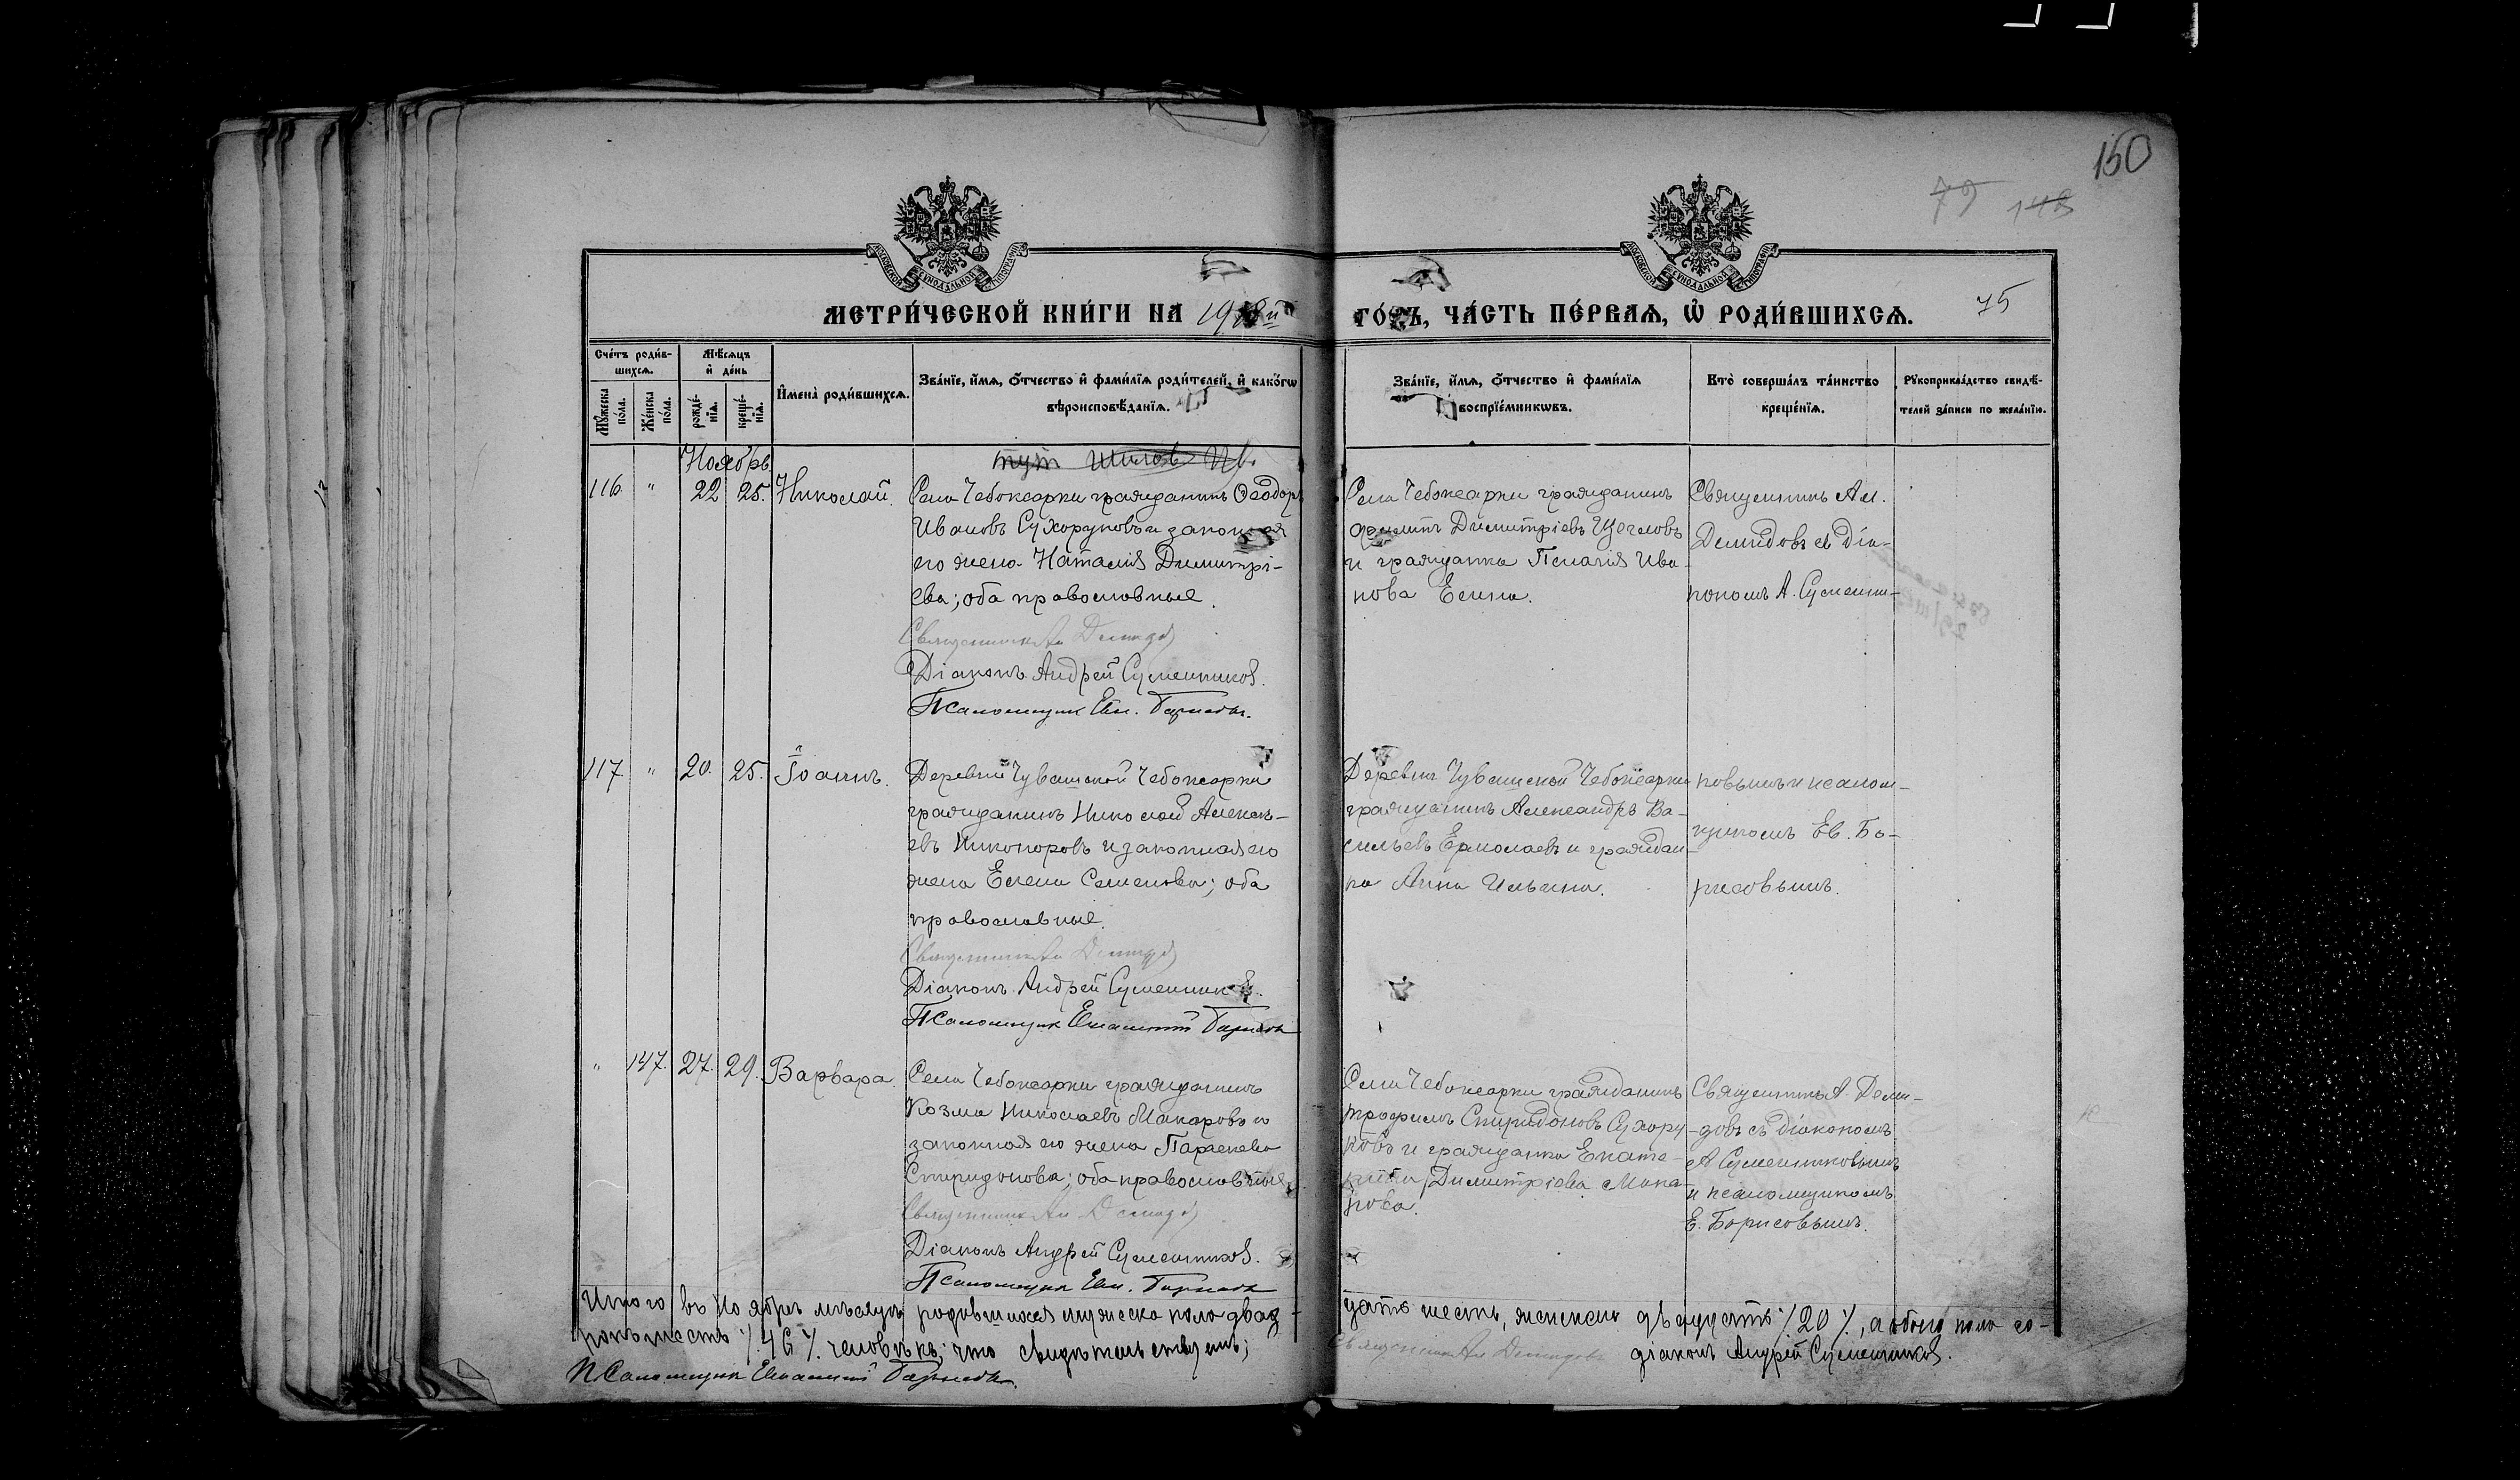 150
79 148
МЕТРИ́ЧЕСКОЙ КНИ́ГИ НА 1918й ГО́ДЪ, ЧА́СТЬ ПЕ́РВАѦ, Ѡ҆ РОДИ́ВШИХСѦ.
75
Сче́тъ роди́вшихсѧ.
Мꙋ́жеска по́ла.
Же́нска по́ла.
Мѣ́сѧцъ и҆ де́нь
рожде́нїѧ.
креще́нїѧ.
И҆мена̀ роди́вшихсѧ.
Зва́нїе, и҆́мѧ, ѻ҆́тчество и҆ фами́лїѧ роди́телей, и҆ како́гѡ
вѣроисповѣ́данїѧ.
Зва́нїе, и҆́мѧ, ѻ҆́тчество и҆ фами́лїѧ
воспрїе́мникѡвъ.
Кто̀ соверша́лъ та́инство
креще́нїѧ.
Рꙋкоприкла́дство свидѣ́-
телей за́писи по жела́нїю.
Ноябрь
116. " 22 25. Николай.
Села Чебоксарки гражданинъ Ѳеодоръ
Ивановъ Сухоруковъ и законная
его жена Наталія Димитрі-
ева; оба православные.
Священникъ Ал Демидов
Діаконъ Андрей Сушенников.
Псаломщик Евл. Борисовъ.
Села Чебоксарки гражданинъ
Димитріевъ Щегловъ
и гражданка Пелагія Ива-
нова Елина.
Священникъ Ал.
Демидовъ съ діа-
кономъ А. Сушенни-
117. " 20. 25. Іоаннъ.
Деревни Чувашской Чебоксарки
гражданинъ Николай Алексѣ-
евъ Никоноровъ и законная его
жена Елена Семенова; оба
православные.
Священникъ Ал Демидов
Діаконъ Андрей Сушенников.
Псаломщик Борисовъ
Деревни Чувашской Чебоксарки
гражданинъ Александръ Ва-
сильевъ Ермолаевъ и граждан-
ка Анна Ильина.
ковымъ и псалом-
щикомъ Ев. Бо-
рисовымъ.
" 147. 27. 29. Варвара.
Села Чебоксарки гражданинъ
Козма Николаевъ Макаровъ и
законная его жена Параскева
Спиридонова; оба православные.
Священникъ Ал Демидов
Діаконъ Андрей Сушенников.
Псаломщик Евл. Борисовъ
Села Чебоксарки гражданинъ
Трофимъ Спиридоновъ Сухору-
ковъ и гражданка Екате-
рина Димитріева Мака-
рова.
Священникъ А. Деми-
довъ съ діакономъ
А Сушенниковымъ
и псаломщикомъ
Е. Борисовымъ.
Итого въ Ноябрѣ мѣсяцѣ родившихся мужеска пола двад-
цать шесть, женска двадцать /20/, а обоего пола со-
рокъ шесть /46/ человѣкъ; что свидѣтельствуемъ;
Священникъ Ал Демидовъ
діаконъ Андрей Сушенников.
Псаломщик Борисовъ.